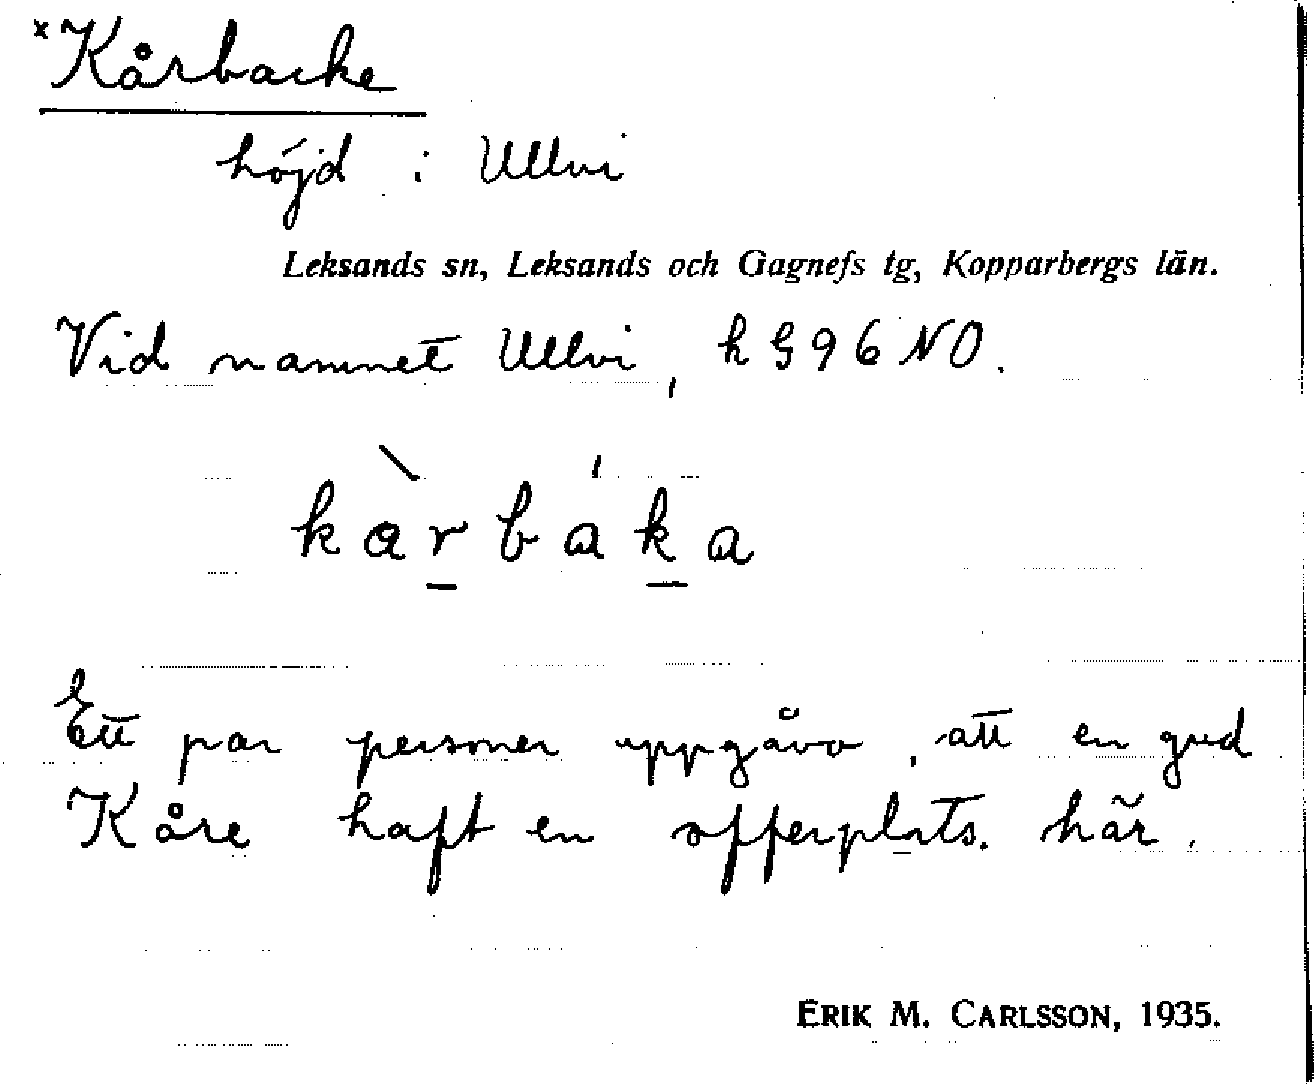 x Kårbacke
höjd i Ullvi
Leksands sn, Leksands och Gagnefs tg, Kopparbergs län.
Vid namnet Ullvi, h G 9 6 NO.
kàrbáka
Ett par personer uppgåvo, att en gud
Kåre haft en offerplats. här.
ERIK M. CARLSSON, 1935.